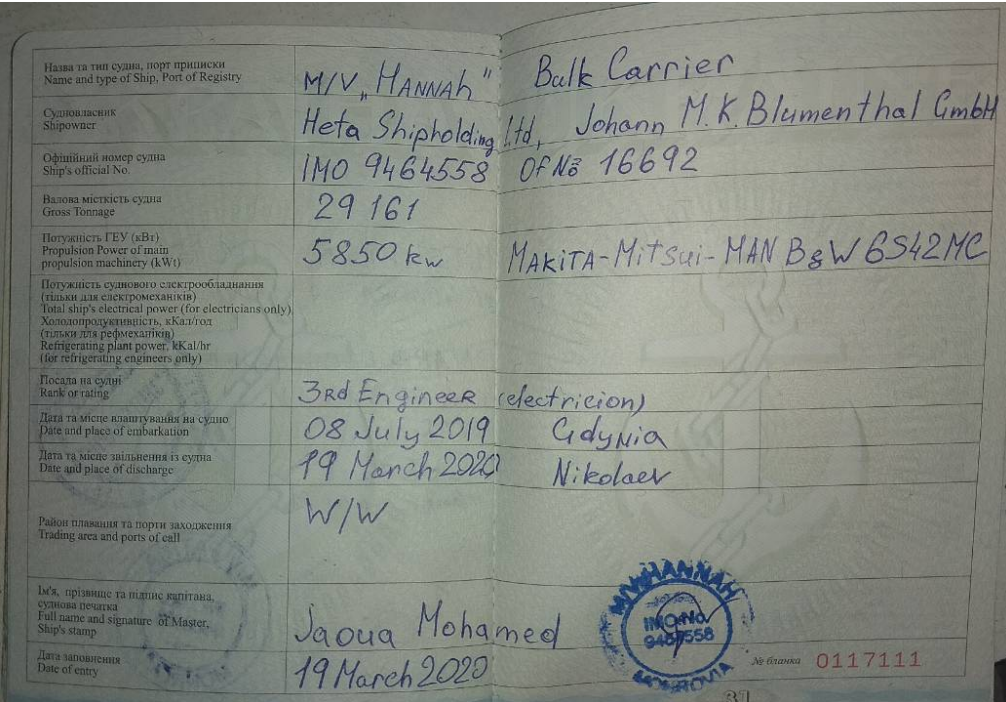 Назва та тип судна, порт приписки
Name and type of Ship, Port of Registry
M/V „HANNAh" Bulk Carrier
Судновласник
Shipowner
Heta Shipholding Ltd, Johann M.K.Blumenthal GmbH
Офіційний номер судна
Ship's official No.
IMO 9464558 Of № 16692
Валова місткість судна
Gross Tonnage
29 161
Потужність ГЕУ (кВт)
Propulsion Power of main
propulsion machinery (kWt)
5850 kw MAKITA-Mitsui-MAN B&W 6S42MC
Потужність суднового електрообладнання
(тільки для електромеханіків)
Total ship's electrical power (for electricians only)
Холодопродуктивність, кКал/год
(тільки для рефмеханіків)
Refrigerating plant power, kKal/hr
(for refrigerating engineers only)
Посада на судні
Rank or rating
3Rd EngineeR (electricion)
Дата та місце влаштування на судно
Date and place of embarkation
08 July 2019 Gdynia
Дата та місце звільнення із судна
Date and place of discharge
19 March 2020 Nikolaev
Район плавання та порти заходження
Trading area and ports of call
W/W
Ім'я, прізвище та підпис капітана,
суднова печатка
Full name and signature of Master,
Ship's stamp
Jaoua Mohamed
M/V HANNAH
IMO No.
MONROVIA
Дата заповнення
Date of entry
19 March 2020
№ бланка 0117111
31